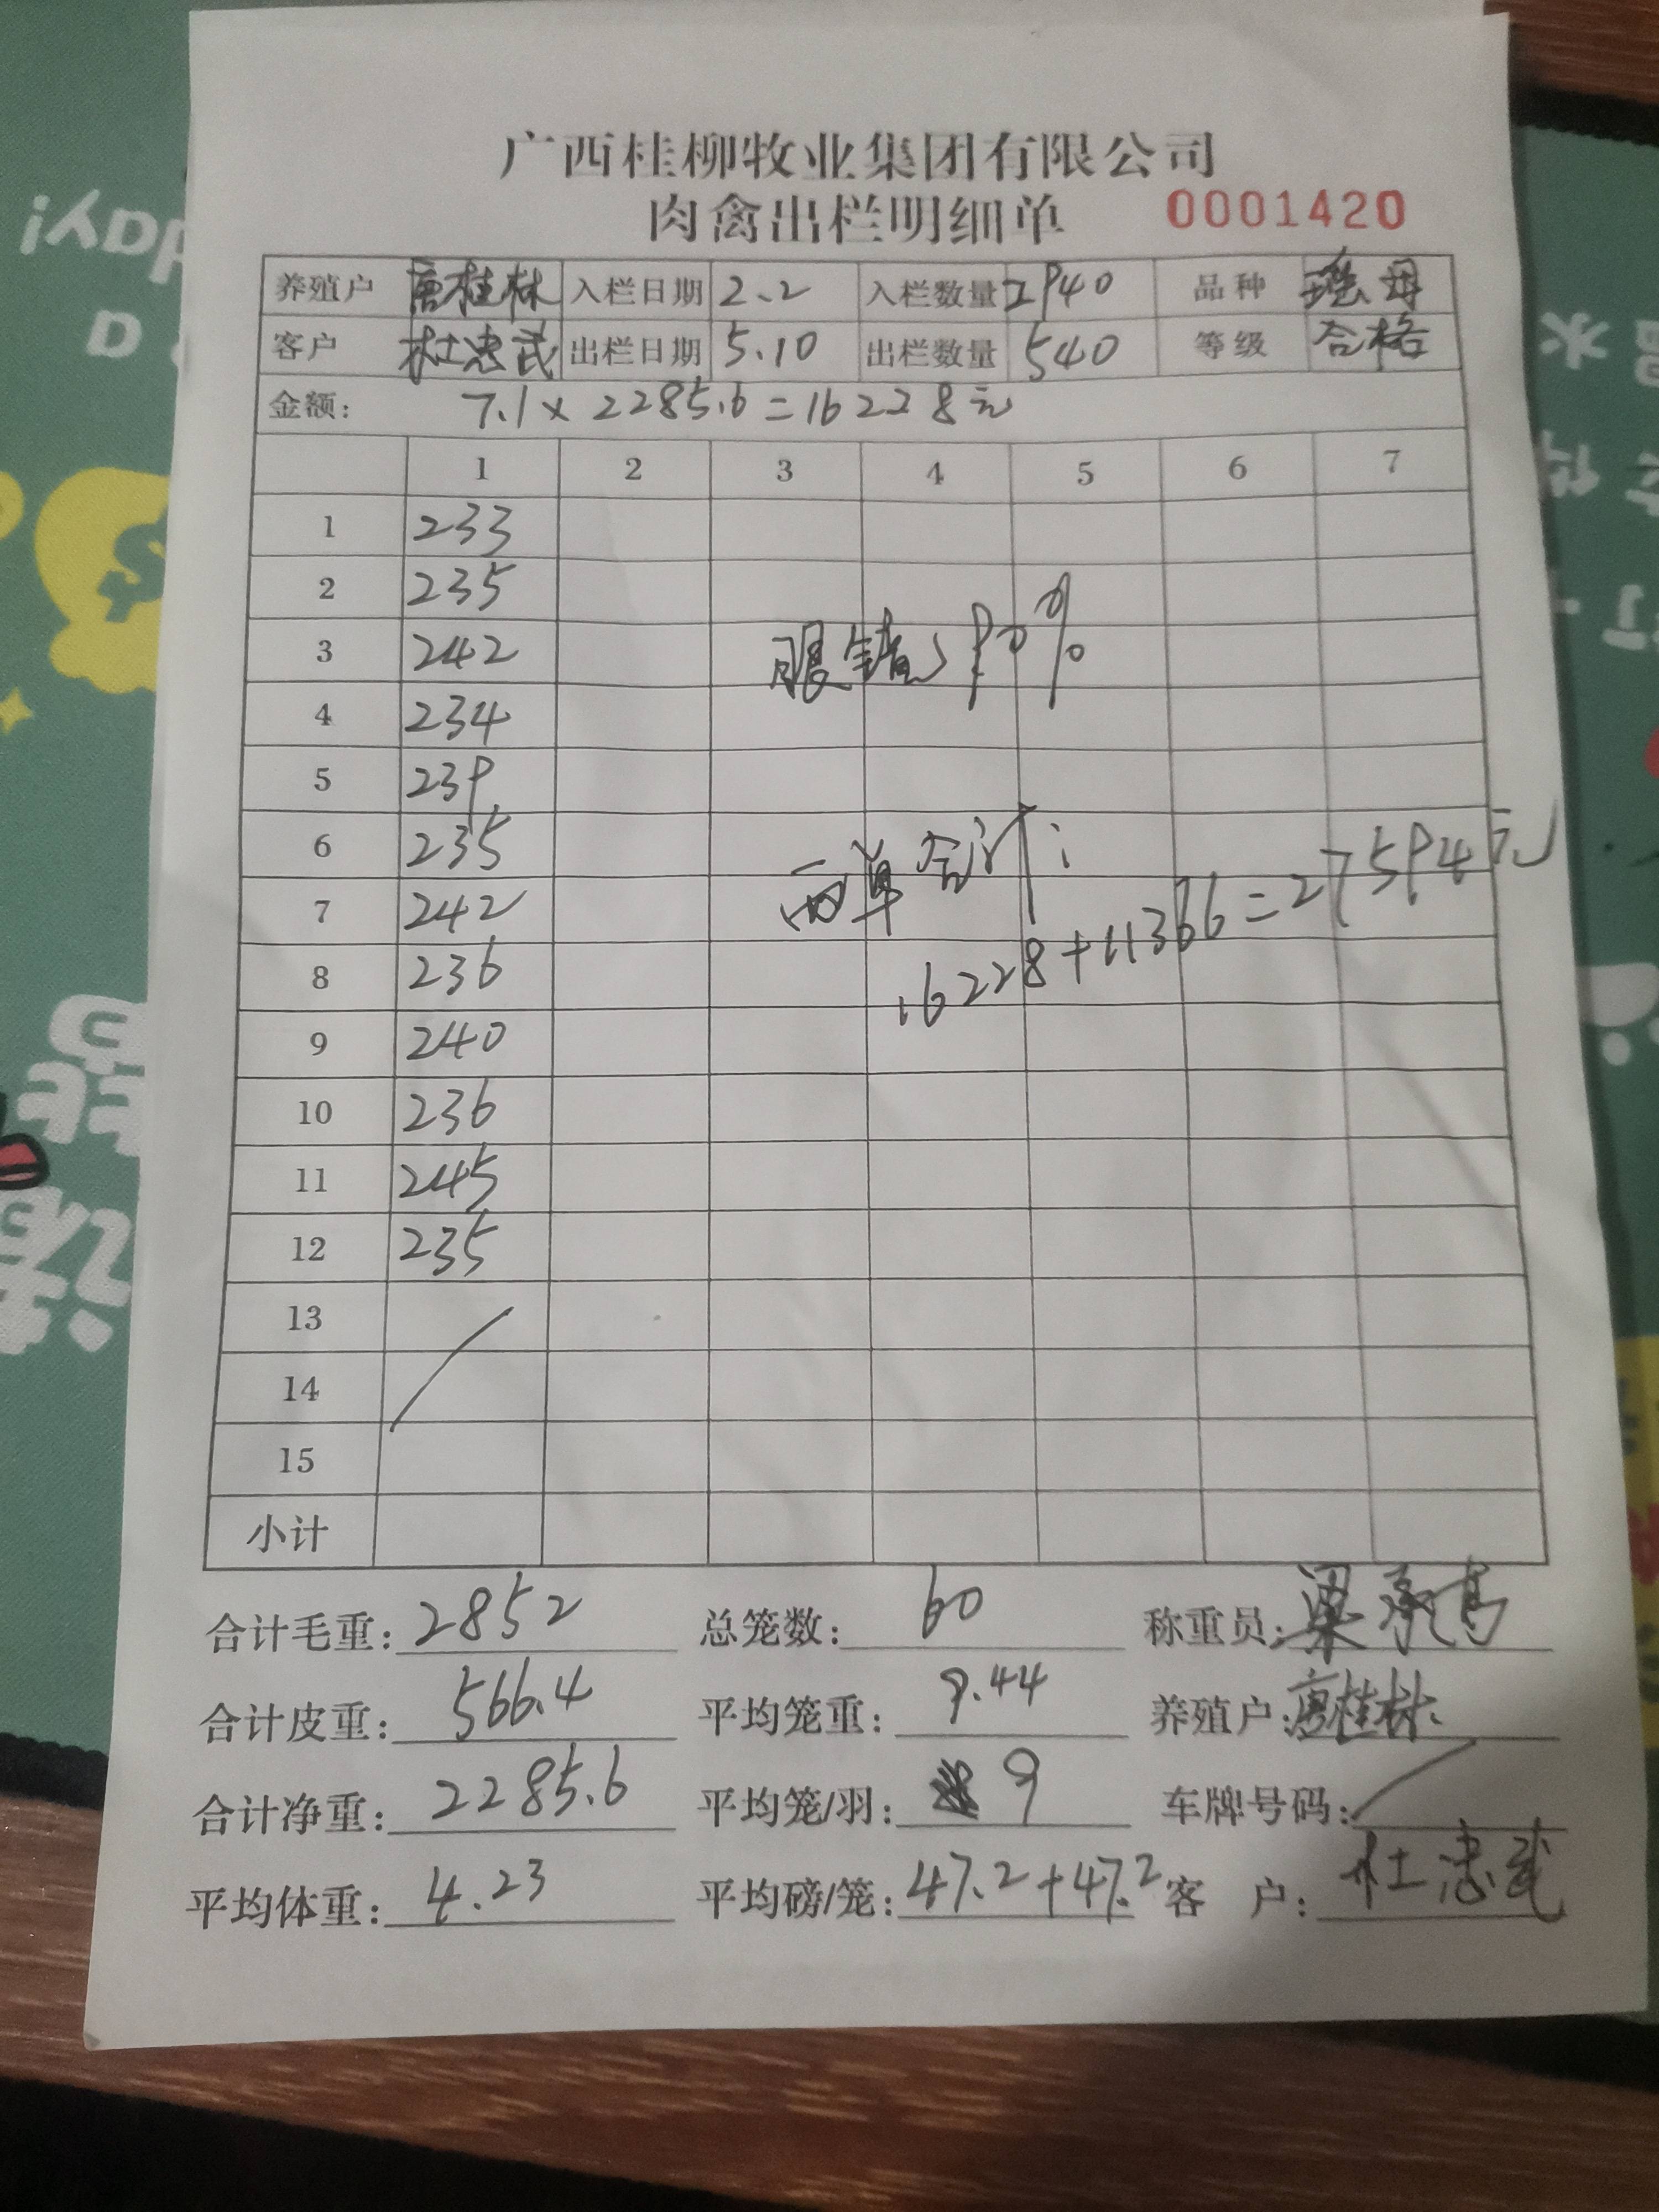 广西桂柳牧业集团有限公司
肉禽出栏明细单 0001420
养殖户 唐桂林 入栏日期 2.2 入栏数量 2940 品种 瑶母
客户 杜忠武 出栏日期 5.10 出栏数量 540 等级 合格
金额: 7.1×2285.6=16228元
1 2 3 4 5 6 7
1 233
2 235
3 242
眼错90%
4 234
5 239
6 235
两单合计:
7 242
16228+11366=27594元
8 236
9 240
10 236
11 245
12 235
13
14
15
小计
合计毛重: 2852 总笼数: 60 称重员: 梁承高
合计皮重: 566.4 平均笼重: 9.44 养殖户: 唐桂林
合计净重: 2285.6 平均笼/羽: 9 车牌号码:
平均体重: 4.23 平均磅/笼: 47.2+47.2 客 户: 杜忠武